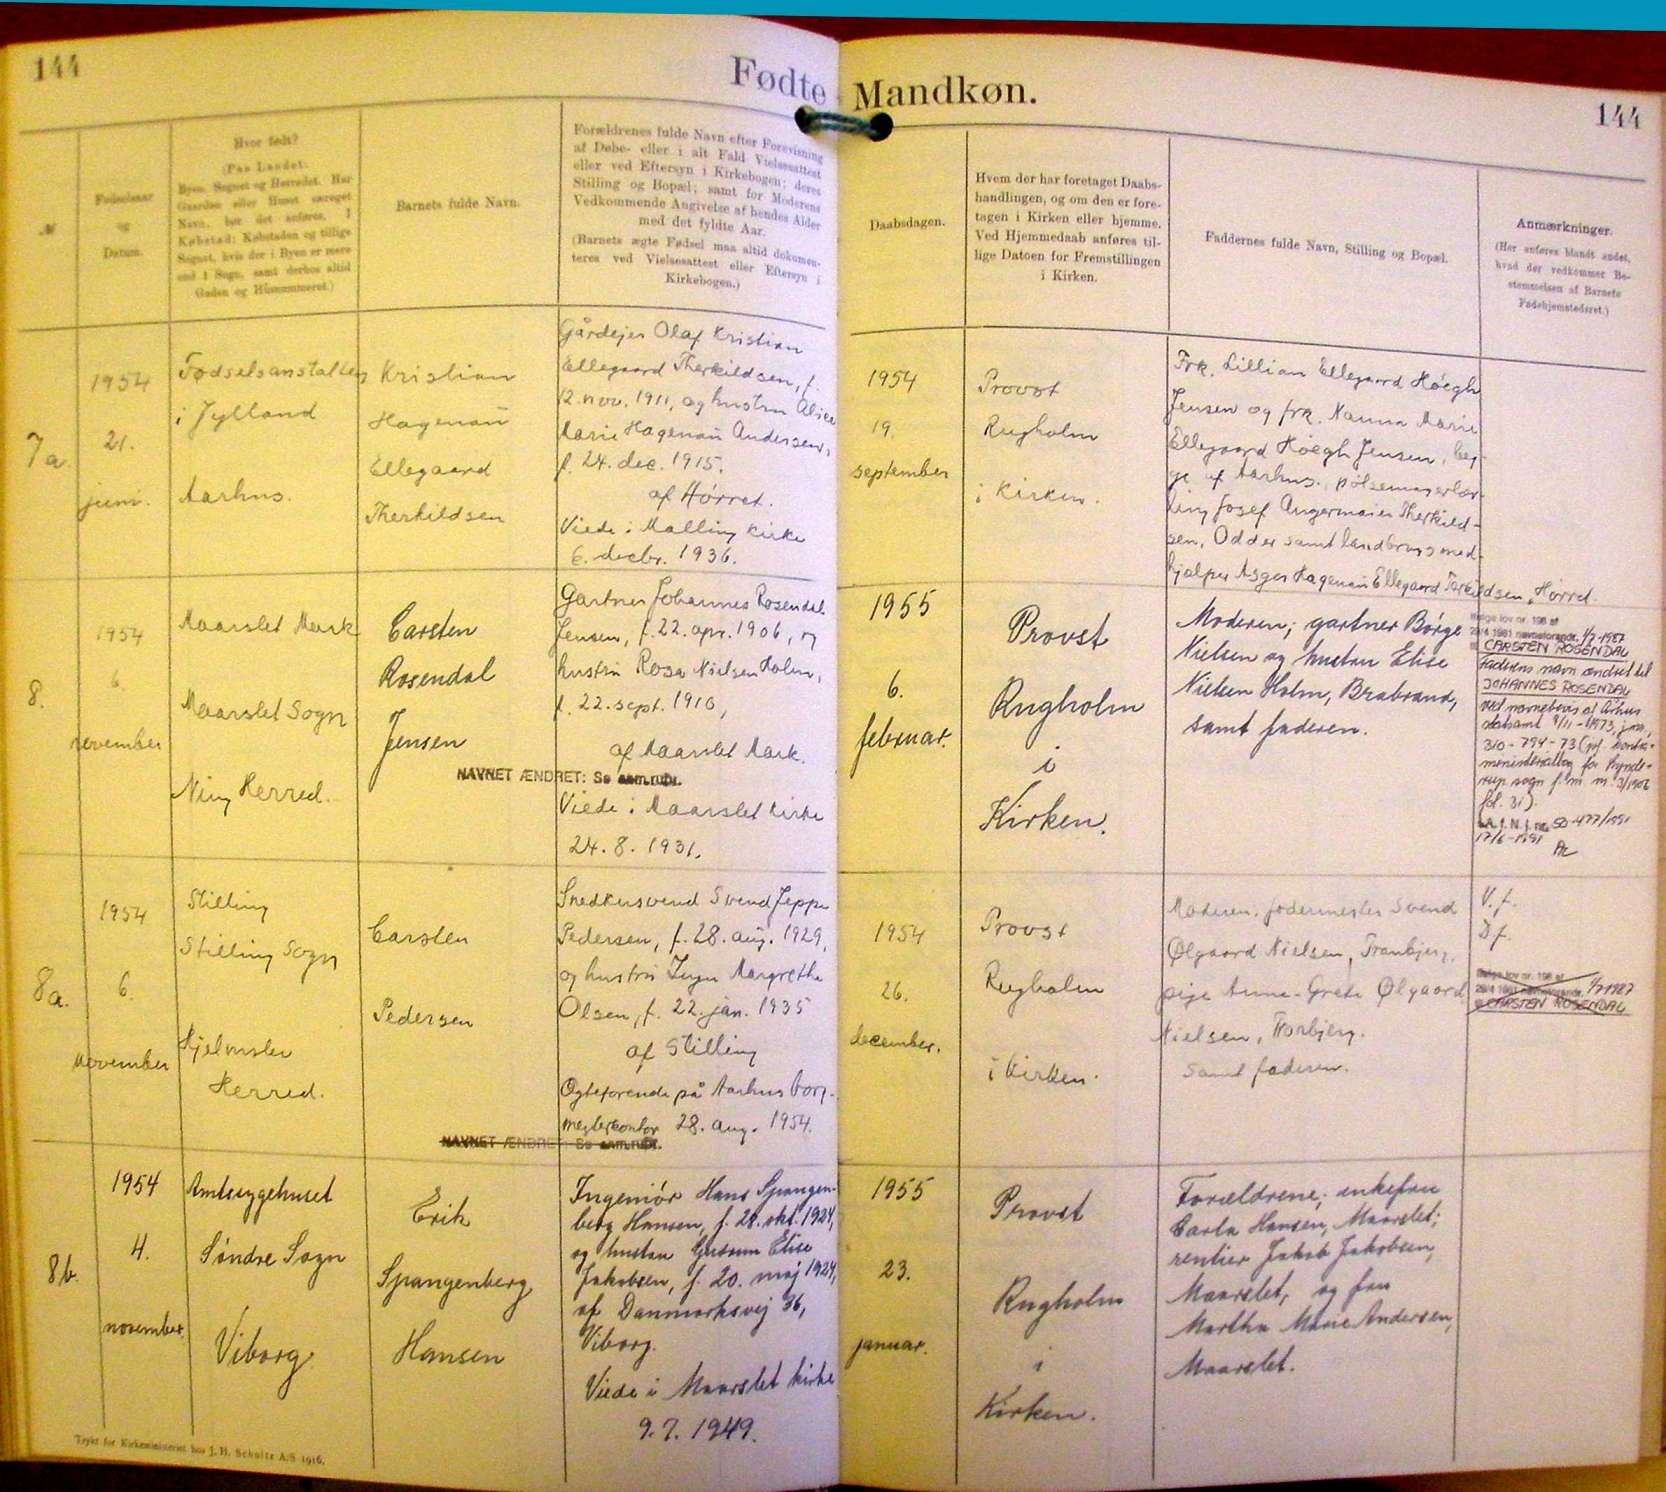 144
Fødte Mandkøn.
144
№
Fødselsaar
og
Datum.
Hvor født?
(Paa Landet:
Byen, Sognet og Herredet. Har
Gaarden eller Huset særeget
Navn, bør det anføres. I
Købstad: Købstaden og tillige
Sognet, hvis der i Byen er mere
end 1 Sogn, samt derhos altid
Gaden og Husnummeret.)
Barnets fulde Navn.
Forældrenes fulde Navn efter Forevisning
af Døbe- eller i alt Fald Vielsesattest
eller ved Eftersyn i Kirkebogen; deres
Stilling og Bopæl; samt for Moderens
Vedkommende Angivelse af hendes Alder
med det fyldte Aar.
(Barnets ægte Fødsel maa altid dokumen-
teres ved Vielsesattest eller Eftersyn i
Kirkebogen.)
Daabsdagen.
Hvem der har foretaget Daabs-
handlingen, og om den er fore-
tagen i Kirken eller hjemme.
Ved Hjemmedaab anføres til-
lige Datoen for Fremstillingen
i Kirken.
Faddernes fulde Navn, Stilling og Bopæl.
Anmærkninger.
(Her anføres blandt andet,
hvad der vedkommer Be-
stemmelsen af Barnets
Fødehjemstedsret.)
7a
1954
21.
juni.
Fødselsanstalten
i Jylland
Aarhus.
Kristian
Hagenaú
Ellegaard
Therkildsen
Gårdejer Olaf Kristian
Ellegaard Therkildsen, f.
12. nov. 1911, og hustru Alice
Marie Hagenaú Andersen,
f. 24. dec. 1915.
af Hørret.
Viede i Malling Kirke
6. decbr. 1936.
1954
19.
september
Provst
Rugholm
i Kirken.
Frk. Lillian Ellegaard Høegh
Jensen og frk. Nanna Marie
Ellegaard Høegh Jensen, beg-
ge af Aarhus, pølsemagerlær-
ling Josef Angermaier Therkild-
sen, Odder samt landbrugsmed-
hjælper Asger Hagenaú Ellegaard Terkildsen, Hørret.
8.
1954
6
november
Maarslet Mark
Maarslet Sogn
Ning Herred.
Carsten
Rosendal
Jensen
Gartner Johannes Rosendal
Jensen, f. 22. apr. 1906, og
hustru Rosa Nielsen Holm,
f. 22. sept. 1910,
af Maarslet Mark.
NAVNET ÆNDRET: Se anm.rubr.
Viede i Maarslet Kirke
24. 8. 1931.
1955
6.
februar.
Provst
Rugholm
i
Kirken.
Moderen; gartner Børge
Nielsen og hustru Elise
Nielsen Holm, Brabrand,
samt faderen.
Ifølge lov nr. 193 af
29/4 1981 navneforandr. 1/7-1987
CARSTEN ROSENDAL
Faderens navn ændret til
JOHANNES ROSENDAL
ved navnebevis af Århus
statsamt 9/11-1973, jnr.
310-794-73 (jvf. konte-
ministerialbog for Rynde-
rup sogn f. m. m. 3/1906
fol. 31).
L.A. f. N. J. nr. 50-477/1991
17/6-1991
8a.
1954
6.
november
Stilling
Stilling Sogn
Hjelmslev
Herred.
Carsten
Pedersen
Snedkersvend Svend Jeppe
Pedersen, f. 28. aug. 1929,
og hustru Inga Margrethe
Olsen, f. 22. jan. 1935
af Stilling
Ægteforende på Aarhus borg-
mesterkontor 28. aug. 1954.
NAVNET ÆNDRET: Se anm.rubr.
1954
26.
december.
Provst
Rugholm
i kirken.
Moderen, fodermester Svend
Ølgaard Nielsen, Tranbjerg,
pige Anne-Grete Ølgaard
Nielsen, Tranbjerg.
samt faderen.
V. f.
D f.
Ifølge lov nr. 193 af
29/4 1981 navneforandr. 1/7 1987
CARSTEN ROSENDAL
8b.
1954
4.
november.
Amtssygehuset
Søndre Sogn
Viborg
Erik
Spangenberg
Hansen
Ingeniør Hans Spangen-
berg Hansen, f. 28. okt. 1924,
og hustru Gudrun Elise
Jakobsen, f. 20. maj 1924,
af Danmarksvej 36,
Viborg.
Viede i Maarslet kirke
9. 7. 1949.
1955
23.
januar.
Provst
Rugholm
i
Kirken.
Forældrene; enkefru
Carla Hansen, Maarslet;
rentier Jakob Jakobsen,
Maarslet, og fru
Martha Marie Andersen,
Maarslet.
Trykt for Kirkeministeriet hos J. H. Schultz A/S 1916.